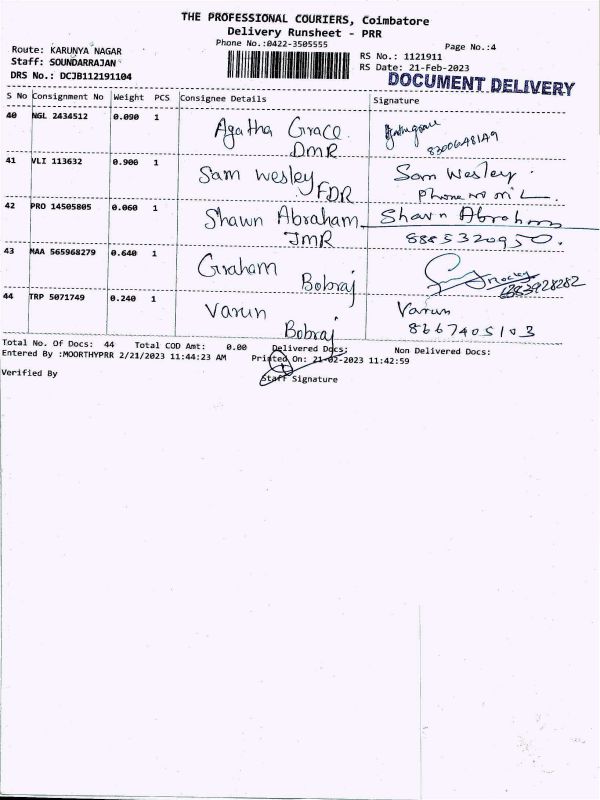 THE PROFESSIONAL COURIERS, Coimbatore
Delivery Runsheet - PRR
Phone No.:0422-3505555
Page No.:4
Route: KARUNYA NAGAR
Staff: SOUNDARRAJAN
DRS No.: DCJB112191104
RS No.: 1121911
RS Date: 21-Feb-2023
DOCUMENT DELIVERY
S No Consignment No Weight PCS Consignee Details Signature
40 NGL 2434512 0.090 1 Agatha Grace
DMR 8300648149
41 VLI 113632 0.900 1 Sam Wesley Sam Wesley
FDR Phone no
42 PRO 14505805 0.060 1 Shawn Abraham Shawn Abraham
JMR 8885320950.
43 MAA 565968279 0.640 1 Graham
Bobraj
44 TRP 5071749 0.240 1 Varun Varun
Bobraj 8667405103
Total No. Of Docs: 44 Total COD Amt: 0.00 Delivered Docs: Non Delivered Docs:
Entered By :MOORTHYPRR 2/21/2023 11:44:23 AM Printed On: 21-02-2023 11:42:59
Verified By Staff Signature